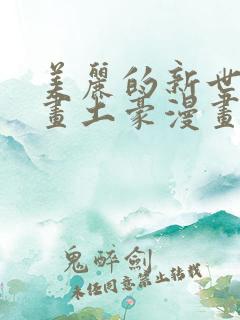 美麗的新世
畫土豪漫畫
鬼醉劍
未经同意禁止转载